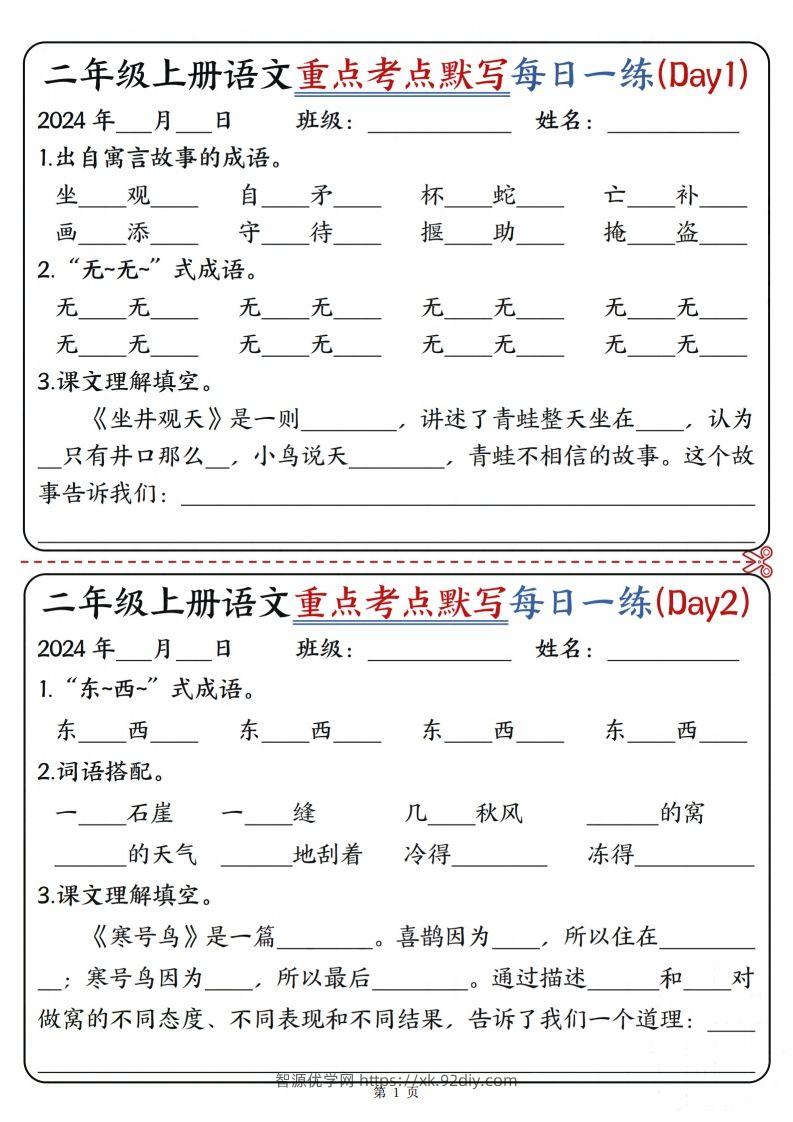 二年级上册语文重点考点默写每日一练(Day1)
2024 年___月___日 班级：____________ 姓名：___________
1.出自寓言故事的成语。
坐____观____ 自____矛____ 杯____蛇____ 亡____补____
画____添____ 守____待____ 揠____助____ 掩____盗____
2.“无~无~”式成语。
无____无____ 无____无____ 无____无____ 无____无____
无____无____ 无____无____ 无____无____ 无____无____
3.课文理解填空。
《坐井观天》是一则________，讲述了青蛙整天坐在____，认为
__只有井口那么__，小鸟说天________，青蛙不相信的故事。这个故
事告诉我们：________________________________________________
____________________________________________________________
二年级上册语文重点考点默写每日一练(Day2)
2024 年___月___日 班级：____________ 姓名：___________
1.“东~西~”式成语。
东____西____ 东____西____ 东____西____ 东____西____
2.词语搭配。
一____石崖 一____缝 几____秋风 ______的窝
______的天气 ______地刮着 冷得________ 冻得__________
3.课文理解填空。
《寒号鸟》是一篇________。喜鹊因为____，所以住在________
__；寒号鸟因为____，所以最后________。通过描述______和____对
做窝的不同态度、不同表现和不同结果，告诉了我们一个道理：____
____________________________________________________________
智源优学网 https://xk.92diy.com
第 1 页